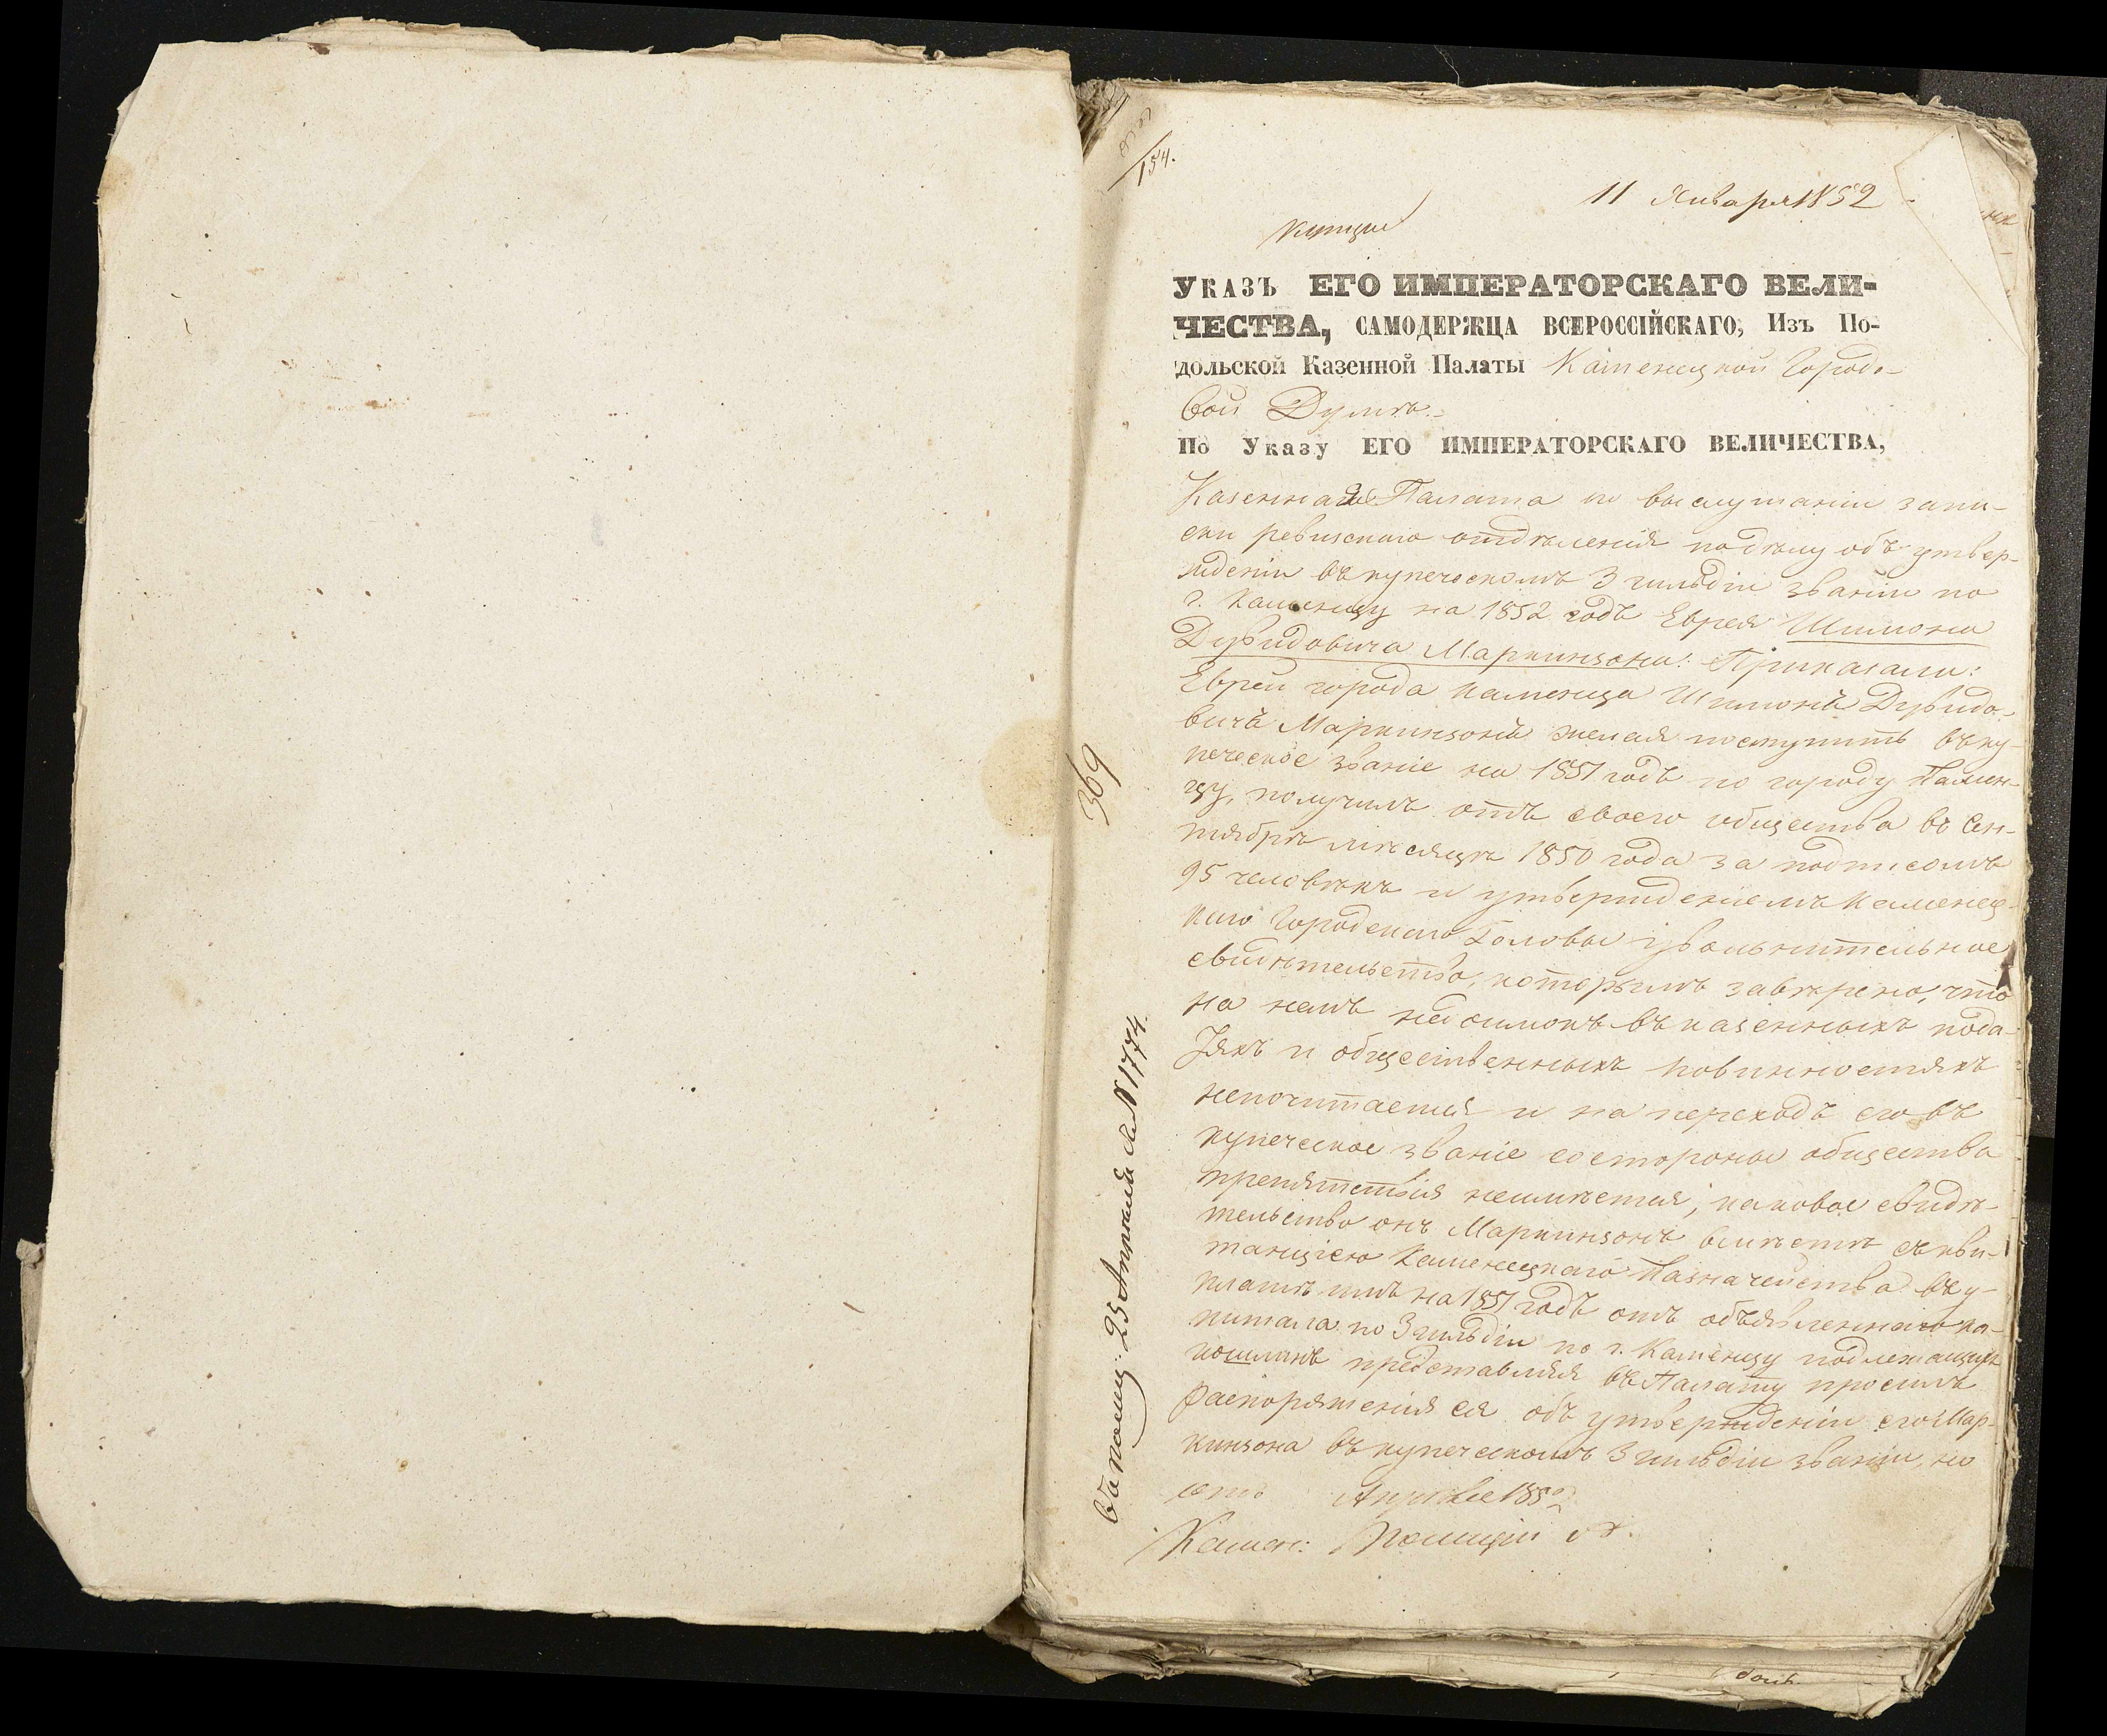 154.
11 Января 1852
купцы
Указъ ЕГО ИМПЕРАТОРСКАГО ВЕЛИ-
ЧЕСТВА, САМОДЕРЖЦА ВСЕРОССІЙСКАГО, Изъ По-
дольской Казенной Палаты Каменецкой Городо-
вой Думѣ.
По Указу ЕГО ИМПЕРАТОРСКАГО ВЕЛИЧЕСТВА,
Казенная Палата по выслушаніи запи-
ски ревизскаго отдѣленія по дѣлу объ утвер-
жденіи въ купеческомъ 3 гильдіи званіи по
г. Каменцу на 1852 годъ Еврея Шимона
Дувидовича Маркинзона: Приказали:
Еврей города Каменца Шимонъ Дувидо-
вичъ Маркинзонъ желая поступить въ ку-
печеское званіе на 1851 годъ по городу Камен-
цу, получилъ отъ своего общества въ Сен-
тябрѣ мѣсяцѣ 1850 года за подписомъ
95 человѣкъ и утвержденіемъ Каменец-
каго Городскаго Головы увольнительное
свидѣтельство, которымъ завѣрено, что
на немъ недоимокъ въ казенныхъ пода-
тяхъ и общественныхъ повинностяхъ
непочитается и на переходъ его въ
купеческое званіе со стороны общества
препятствія неимѣется, каковое свидѣ-
тельство онъ Маркинзонъ вмѣстѣ съ кви-
танціею Каменецкаго Казначейства въ у-
платѣ имъ на 1851 годъ отъ объявленнаго ка-
питала по 3 гильдіи по г. Каменцу подлежащихъ
пошлинъ представляя въ Палату просилъ
распоряженія ея объ утвержденіи его Мар-
кинзона въ купеческомъ 3 гильдіи званіи, но
Апрѣля 1852
Камен: Полиціи
369
25 Апрѣля № 1774.